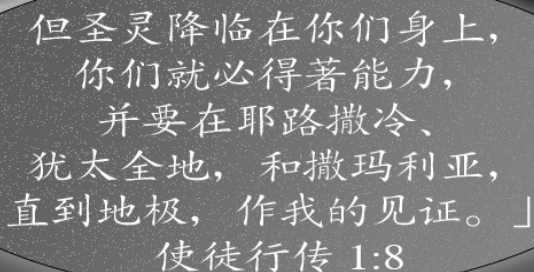 但圣灵降临在你们身上，
你们就必得著能力，
并要在耶路撒冷、
犹太全地，和撒玛利亚，
直到地极，作我的见证。」
使徒行传 1:8